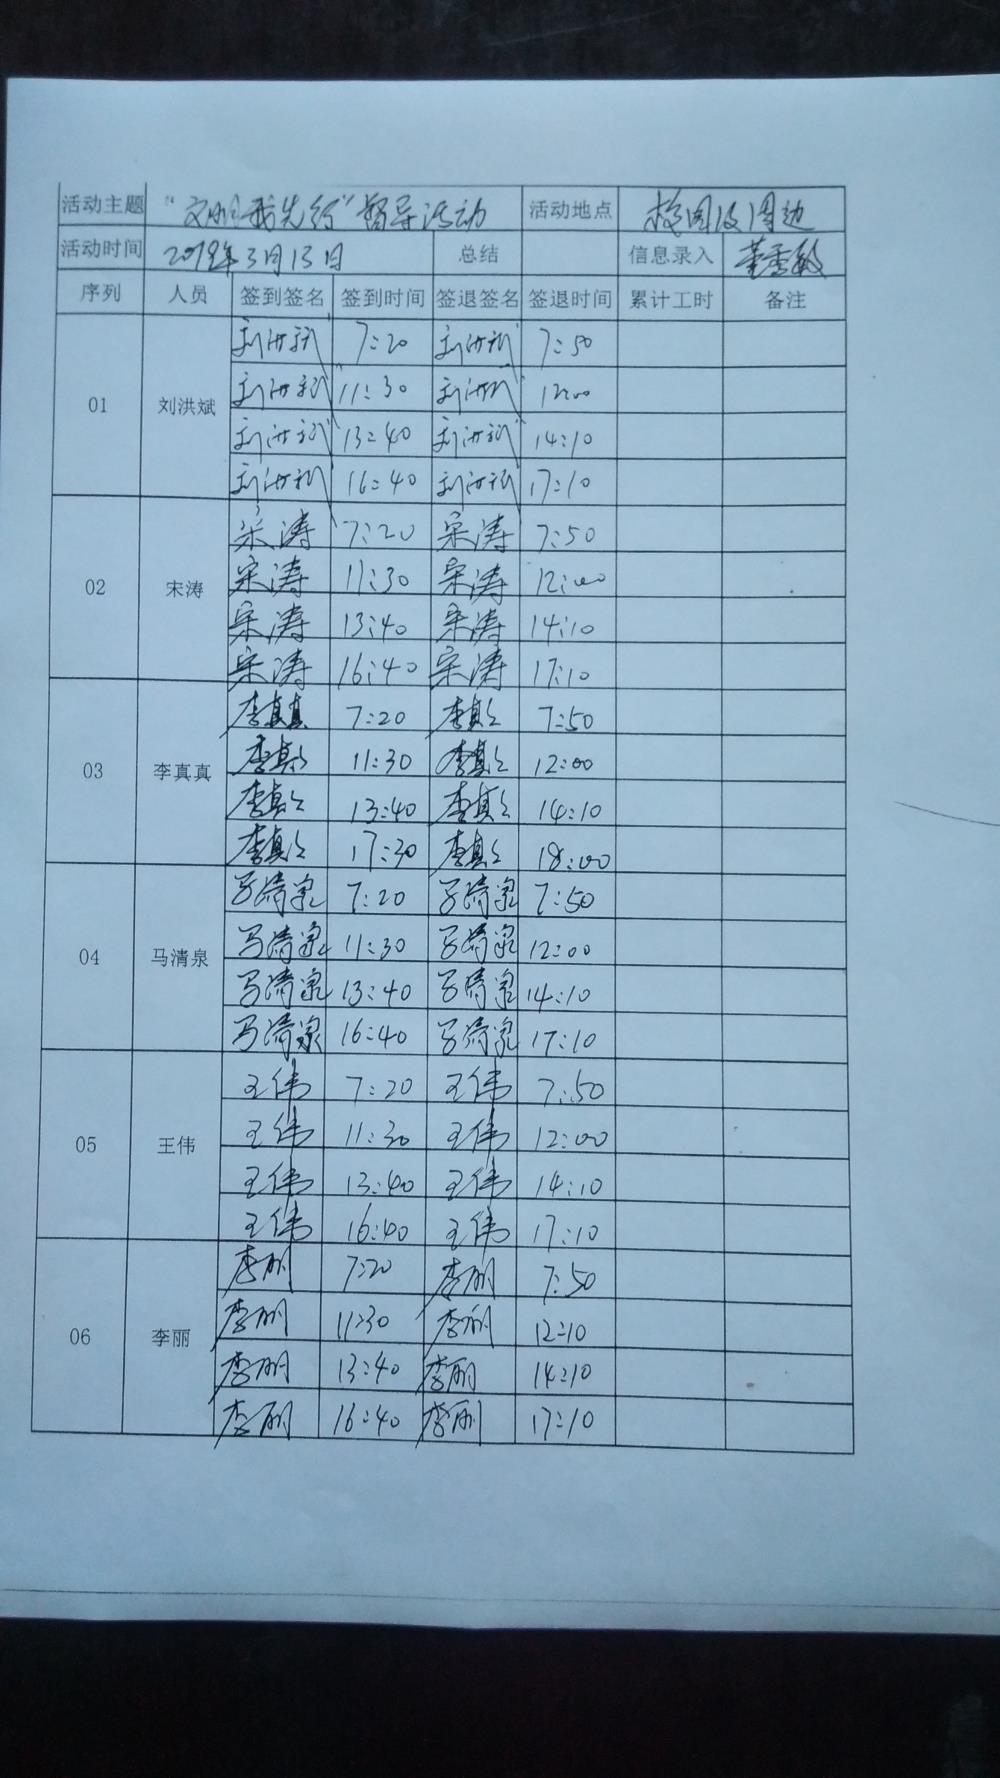 活动主题 “文明我先行”督导活动 活动地点 校园及周边
活动时间 2019年3月13日 总结 信息录入 董秀敏
序列 人员 签到签名 签到时间 签退签名 签退时间 累计工时 备注
刘洪斌 7:20 刘洪斌 7:50
01 刘洪斌 刘洪斌 11:30 刘洪斌 12:00
刘洪斌 13:40 刘洪斌 14:10
刘洪斌 16:40 刘洪斌 17:10
宋涛 7:20 宋涛 7:50
02 宋涛 宋涛 11:30 宋涛 12:00
宋涛 13:40 宋涛 14:10
宋涛 16:40 宋涛 17:10
李真真 7:20 李真真 7:50
03 李真真 李真真 11:30 李真真 12:00
李真真 13:40 李真真 14:10
李真真 17:30 李真真 18:00
马清泉 7:20 马清泉 7:50
04 马清泉 马清泉 11:30 马清泉 12:00
马清泉 13:40 马清泉 14:10
马清泉 16:40 马清泉 17:10
王伟 7:20 王伟 7:50
05 王伟 王伟 11:30 王伟 12:00
王伟 13:40 王伟 14:10
王伟 16:40 王伟 17:10
李丽 7:20 李丽 7:50
06 李丽 李丽 11:30 李丽 12:10
李丽 13:40 李丽 14:10
李丽 16:40 李丽 17:10